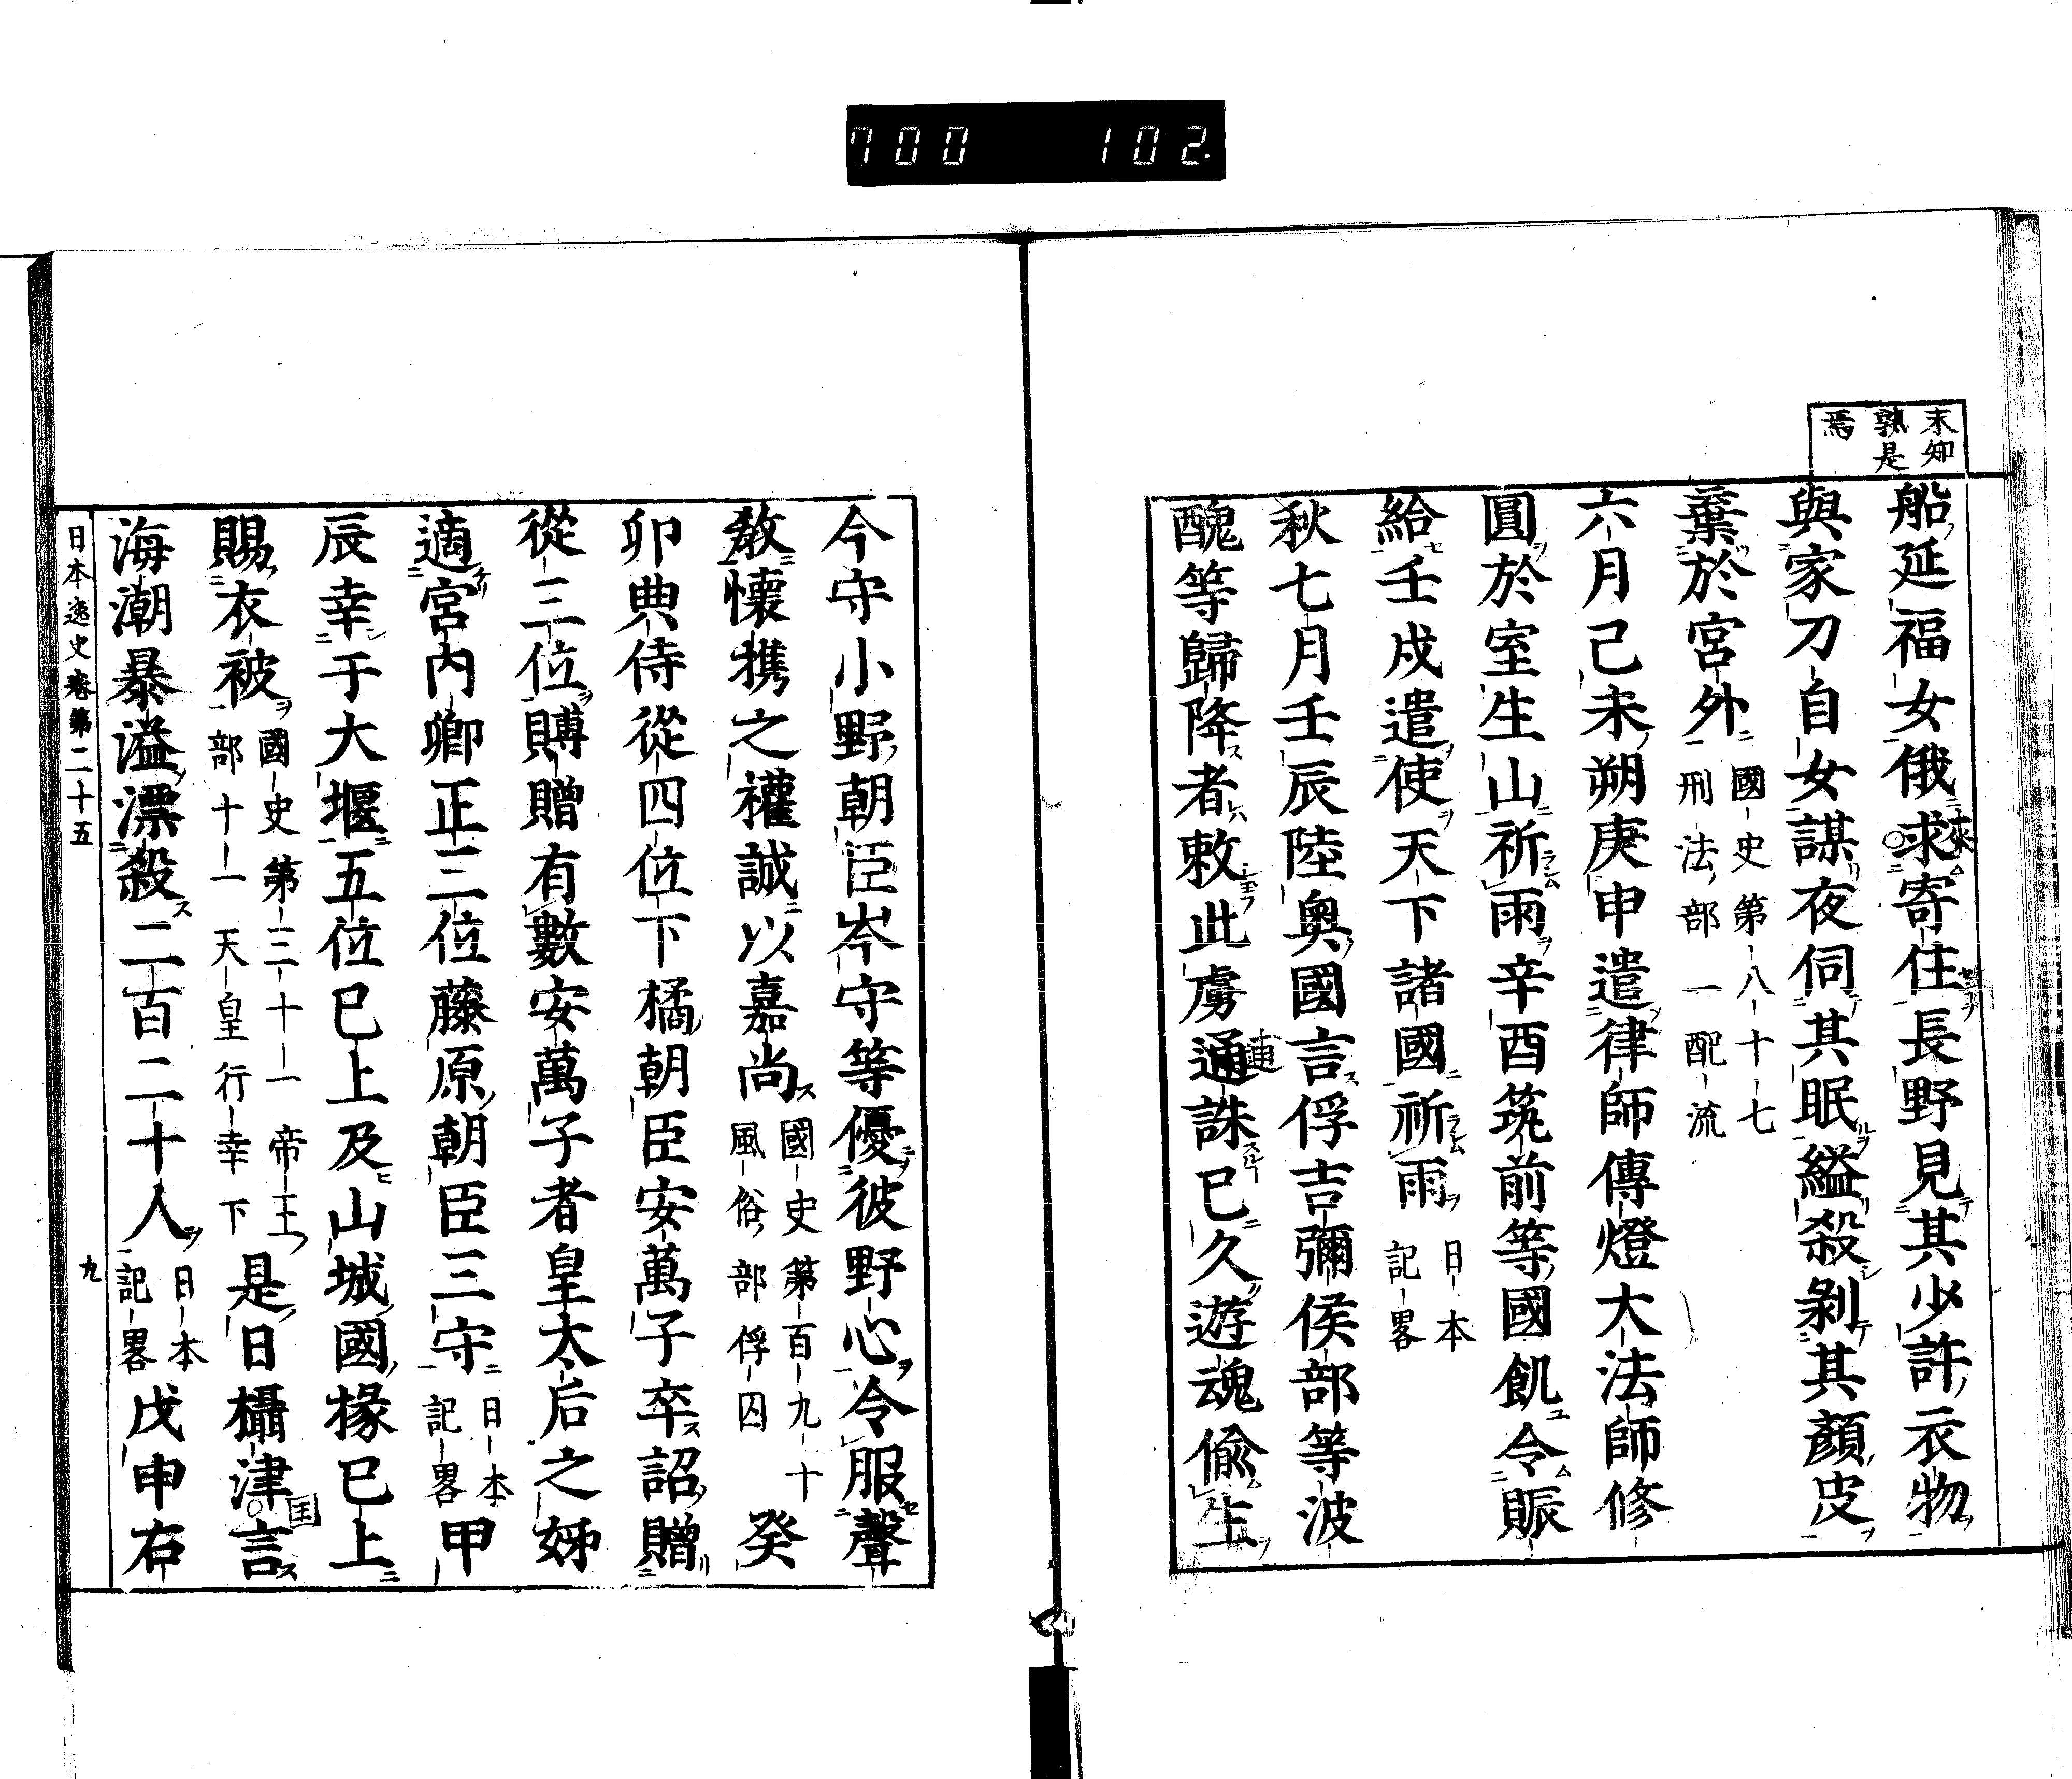 700 102.
未知
孰是
焉
船延福女俄求寄住長野見其少許衣物
與家刀自女謀夜伺其眠縊殺剝其顏皮
棄於宮外國史第八十七
刑法部一配流
六月己未朔庚申遣律師傳燈大法師修
圓於室生山祈雨辛酉筑前等國飢令賑
給壬戌遣使天下諸國祈雨日本
記畧
秋七月壬辰陸奧國言俘吉彌侯部等波
醜等歸降者敕此虜逋誅已久遊魂偸生
今守小野朝臣岑守等優彼野心令服聲
敎懷携之權誠以嘉尚國史第百九十
風俗部俘囚癸
卯典侍從四位下橘朝臣安萬子卒詔贈
從三位賻贈有數安萬子者皇太后之姊
適宮內卿正三位藤原朝臣三守日本
記畧甲
辰幸于大堰五位已上及山城國掾已上
賜衣被國史第三十一帝王
部十一天皇行幸下是日攝津言
海潮暴溢漂殺二百二十人日本
記畧戊申右
日本逸史卷第二十五
九